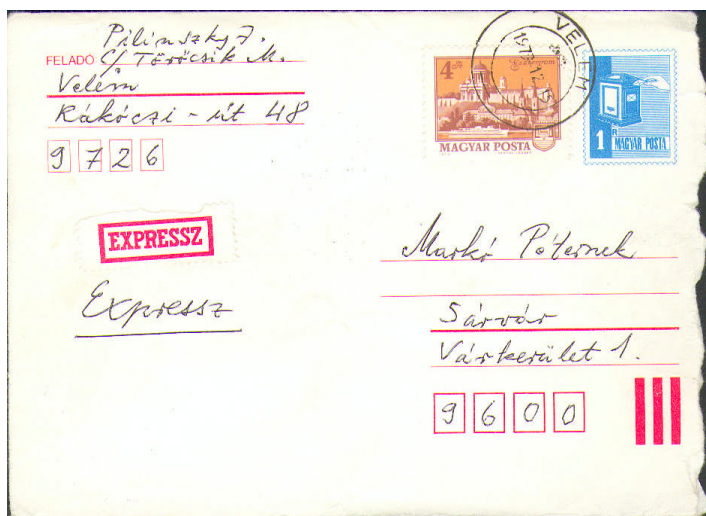 Pilinszky J.
FELADÓ C/ Törőcsik M.
Velem
Rákóczi - út 48
9726
4 Ft
Esztergom
MAGYAR POSTA
VELEM
1 Ft
MAGYAR POSTA
EXPRESSZ
Expressz
Markó Péternek
Sárvár
Várkerület 1.
9600